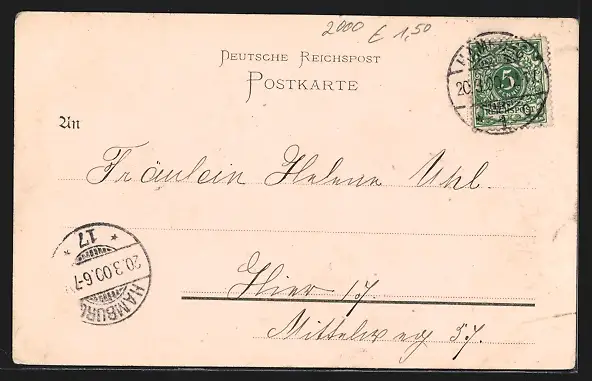 2000 € 1,50
Deutsche Reichspost
Postkarte
5
REICHSPOST
An
Fräulein Helene Uhl.
Hier 17.
Mittelweg 57.
HAMBURG
20.3.00.6-7
* 17 *